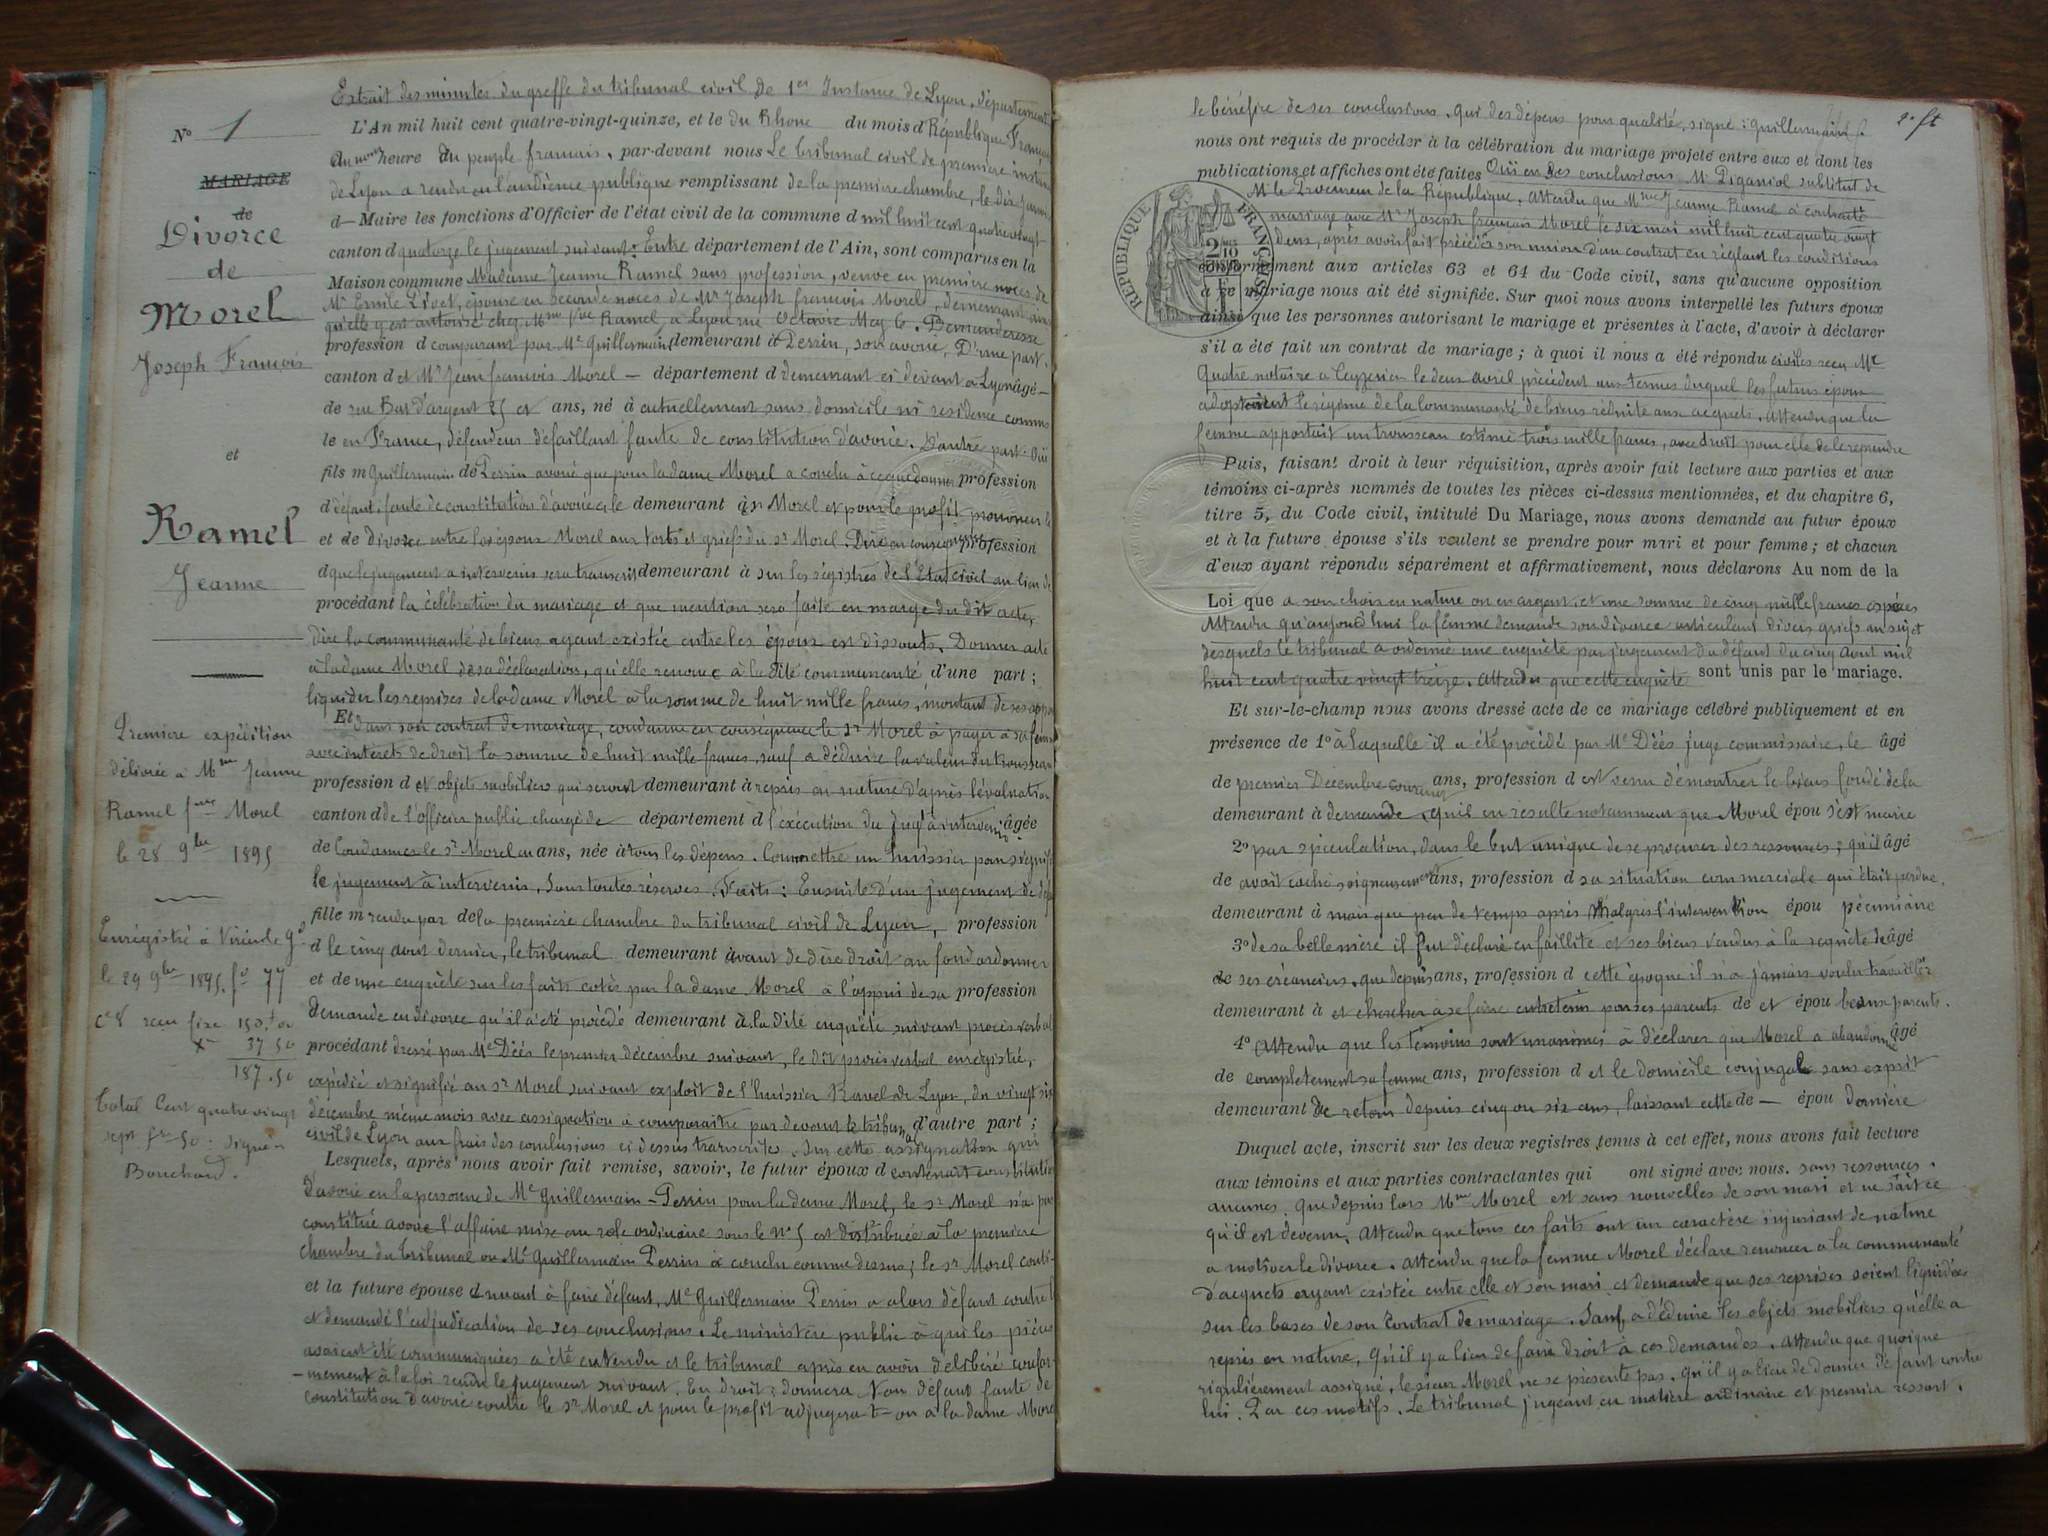 N° 1
MARIAGE
de
Divorce
de
Morel
Joseph François
et
Ramel
Jeanne
Première expédition
délivrée à Mme Jeanne
Ramel fme Morel
le 28 9bre 1895
Enregistré à Virieu le Gd
le 29 9bre 1895, fo 77
ce 8 recu fixe 150
37 50
187.50
Total Cent quatre vingt
sept fr 50. Signé
Bouchard.
Extrait des minutes du greffe du tribunal civil de 1er Instance de Lyon, département
L'An mil huit cent quatre-vingt-quinze, et le du Rhone du mois d République Française
du nom heure du peuple français, par-devant nous Le tribunal civil de première instance
de Lyon a rendu en l'audience publique remplissant de la première chambre, le dix janvier
d— Maire les fonctions d'Officier de l'état civil de la commune d mil huit cent quatre vingt
canton d quatorze le jugement suivant : Entre département de l'Ain, sont comparus en la
Maison commune Madame Jeanne Ramel sans profession, veuve en première noces de
Mr Emile Pivet, épouse en seconde noces de Mr Joseph françois Morel, demeurant ainsi
qu'elle y est autorisé chez Mme Vve Ramel, à Lyon rue Octavie Mey 6. Demanderesse
profession d comparant par Me Guillermain demeurant à Perrin, son avoué, D'une part.
canton d et Mr Jean françois Morel — département d demeurant ci devant à Lyon âgé —
de rue Bat d'argent 25 et ans, né à actuellement sans domicile ni residence connus
le en France, défendeur défaillant faute de constitution d'avoué. D'autre part. Oui
fils m Guillermain de Perrin avoué que pour la dame Morel a conclu à ce que donner profession
d défaut, faute de constitution d'avoué c, le demeurant à sr Morel et pour le profit prononcer le
et de divorce entre les époux Morel aux torts et griefs du sr Morel. Dire en conséquence profession
d que le jugement a intervenir sera transcrit demeurant à sur les régistres de l'Etat civil au lieu de
procédant la célébration du mariage et que mention sera faite en marge du dit acte,
dire la communauté de biens ayant existée entre les époux est dissoute. Donner acte
à la dame Morel de sa déclaration, qu'elle renonce à la dite communauté d'une part ;
liquider les reprises de la dame Morel à la somme de huit mille francs, montant de ses apports
Et dans son contrat de mariage, condamner en conséquence le sr Morel à payer à sa femme
avec intérêts de droit la somme de huit mille francs, sauf a déduire la valeur du trousseau
profession d et objets mobiliers qui seront demeurant à repris en nature d'après l'évaluation
canton d de l'officier public chargé de département d l'exécution du Jugt à intervenir âgée
de Condamner le sr Morel en ans, née à tous les dépens. Commettre un huissier pour signifier
le jugement à intervenir, Sous toutes réserves. Faits : Ensuite d'un jugement de défaut
fille m rendu par de la première chambre du tribunal civil de Lyon, profession
d le cinq aout dernier, le tribunal demeurant à avant de dire droit au fond ordonner
et de une enquête sur les faits cotés par la dame Morel à l'appui de sa profession
demande en divorce qu'il a été procédé demeurant à la dite enquête suivant procès verbal
procédant dressé par Me Déés le premier décembre suivant, le dit procès verbal enregistré,
expédié et signifié au sr Morel suivant exploit de l'huissier Ravel de Lyon, du vingt six
décembre même mois avec assignation à comparaître par devant le tribunal d'autre part ;
civil de Lyon aux frais des conclusions ci dessus transcrites. Sur cette assignation qui
Lesquels, après nous avoir fait remise, savoir, le futur époux d contenait constitution
d'avoué en la personne de Me Guillermain-Perrin pour la dame Morel, le sr Morel n'a pas
constitué avoué l'affaire mise au role ordinaire sous le No 5 est distribuée à la première
chambre du tribunal ou Me Guillermain Perrin a conclu comme dessus ; le sr Morel conti-
et la future épouse d nuant à faire défaut, Me Guillermain Perrin a alors défaut contre l
et demandé l'adjudication de ses conclusions. Le ministère public à qui les pièces
avaient été communiquées a été entendu et le tribunal après en avoir délibéré confor-
-mement à la loi rendu le jugement suivant. En droit : donnera t-on défaut faute de
constitution d'avoué contre le sr Morel et pour le profit adjugera-t-on à la dame Morel
2e ft
le bénéfice de ses conclusions. Qui des dépens pour qualité, signé : Guillermain
nous ont requis de procéder à la célébration du mariage projeté entre eux et dont les
publications et affiches ont été faites Ouï en ses conclusions Mr Piganiol subtitut de
M le Procureur de la République. Attendu que Mme Jeanne Ramel a contracté
mariage avec Mr Joseph françois Morel le six mai mil huit cent quatre vingt
deux, après avoir fait précéder son union d'un contrat en réglant les conditions
RÉPUBLIQUE FRANÇAISE
conformément aux articles 63 et 64 du Code civil, sans qu'aucune opposition
à ce mariage nous ait été signifiée. Sur quoi nous avons interpellé les futurs époux
ainsi que les personnes autorisant le mariage et présentes à l'acte, d'avoir à déclarer
s'il a été fait un contrat de mariage ; à quoi il nous a été répondu civiles reçu Me
Quatre notaire a Ceyzerieu le deux avril précédent aux termes duquel les futurs époux
adoptaient le régime de la Communauté de biens réduite aux acquets. Attendu que la
femme apportait un trousseau estimé trois mille francs, avec droit pour elle de le reprendre
Puis, faisant droit à leur réquisition, après avoir fait lecture aux parties et aux
témoins ci-après nommés de toutes les pièces ci-dessus mentionnées, et du chapitre 6,
titre 5, du Code civil, intitulé Du Mariage, nous avons demandé au futur époux
et à la future épouse s'ils veulent se prendre pour mari et pour femme ; et chacun
d'eux ayant répondu séparément et affirmativement, nous déclarons Au nom de la
Loi que a son choix en nature ou en argent, et une somme de cinq mille francs espèces
Attendu qu'aujourd'hui la femme demande son divorce articulant divers griefs au sujet
desquels le tribunal a ordonné une enquête par jugement du défaut du cinq Aout mil
huit cent quatre vingt treize. Attendu que cette enquête sont unis par le mariage.
Et sur-le-champ nous avons dressé acte de ce mariage célébré publiquement et en
présence de 1° à laquelle il a été procédé par Me Déés juge commissaire, le âgé
de premier Décembre courant ans, profession d est venu démontrer le biens fondé de la
demeurant à demande, qu'il en resulte notamment que Morel épou s'est marié
2° par spéculation, dans le but unique de se procurer des ressources ; qu'il âgé
de avait caché soigneusement ans, profession d sa situation commerciale qui était perdue,
demeurant à mais que peu de temps après Malgré l'intervention épou pécuniaire
3° de sa belle mère il fut déclaré en faillite et ses biens vendus à la requête de âgé
de ses créanciers, que depuis ans, profession d cette époque il n'a jamais voulu travailler
demeurant à et chercher a se faire entretenir par ses parents de et épou beaux parents.
4° Attendu que les témoins sont unanimes à déclarer que Morel a abandonné âgé
de complétement sa femme ans, profession d et le domicile conjugal sans esprit
demeurant de retour depuis cinq ou six ans, laissant cette de — épou dernière
Duquel acte, inscrit sur les deux registres tenus à cet effet, nous avons fait lecture
aux témoins et aux parties contractantes qui ont signé avec nous. sans ressources.
aucunes. Que depuis lors Mme Morel est sans nouvelles de son mari et ne sait ce
qu'il est devenu. Attendu que tous ces faits ont un caractère injuriant de nature
a motiver le divorce. Attendu que la femme Morel déclare renoncer a la communauté
d'acquets ayant existée entre elle et son mari et demande que ses reprises soient liquidées
sur les bases de son Contrat de mariage. Sauf a déduire les objets mobiliers qu'elle a
repris en nature, Qu'il y a lieu de faire droit à ces demandes. Attendu que quoique
régulièrement assigné, le sieur Morel ne se présente pas. Qu'il y a lieu de donner défaut contre
lui. Par ces motifs. Le tribunal jugeant en matière ordinaire et premier ressort.